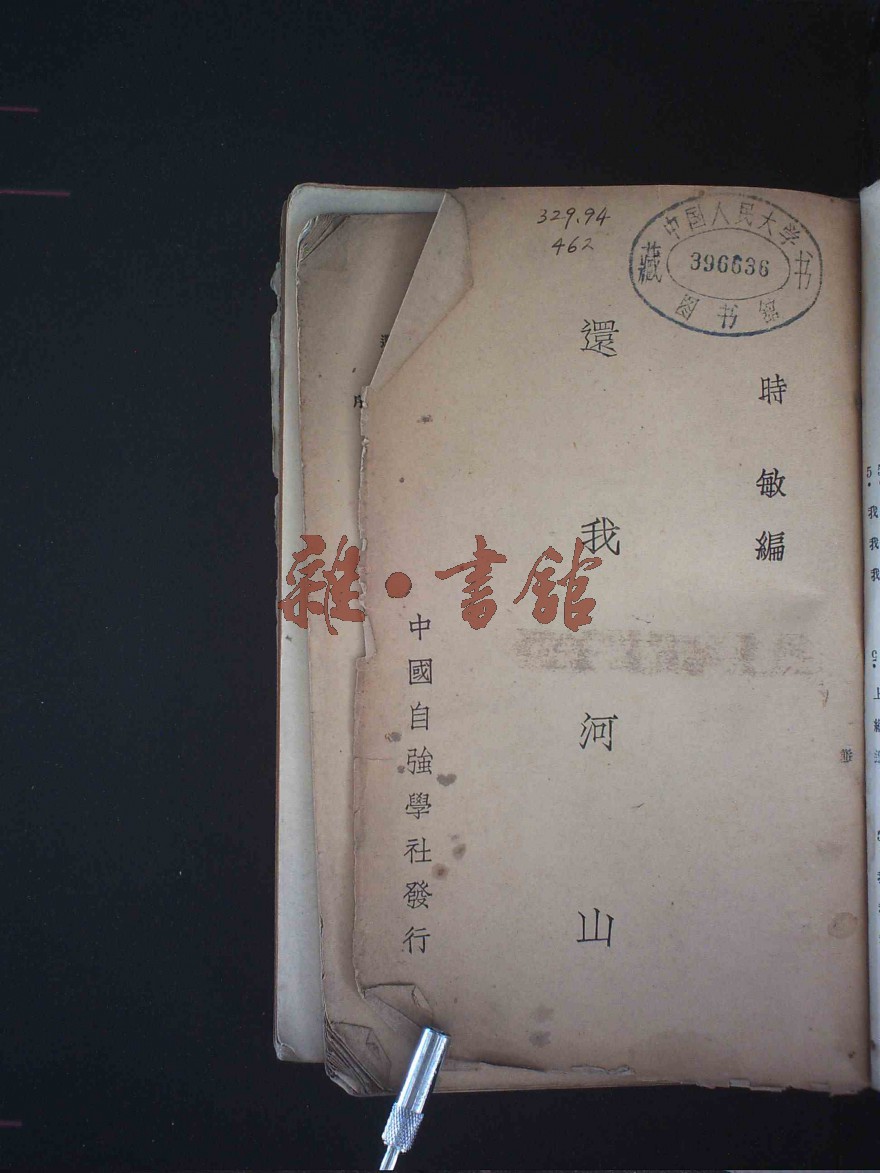 329.94
462
中国人民大学
藏 396636 书
图书馆
時敏編
還我河山
中國自強學社發行
雜·書館